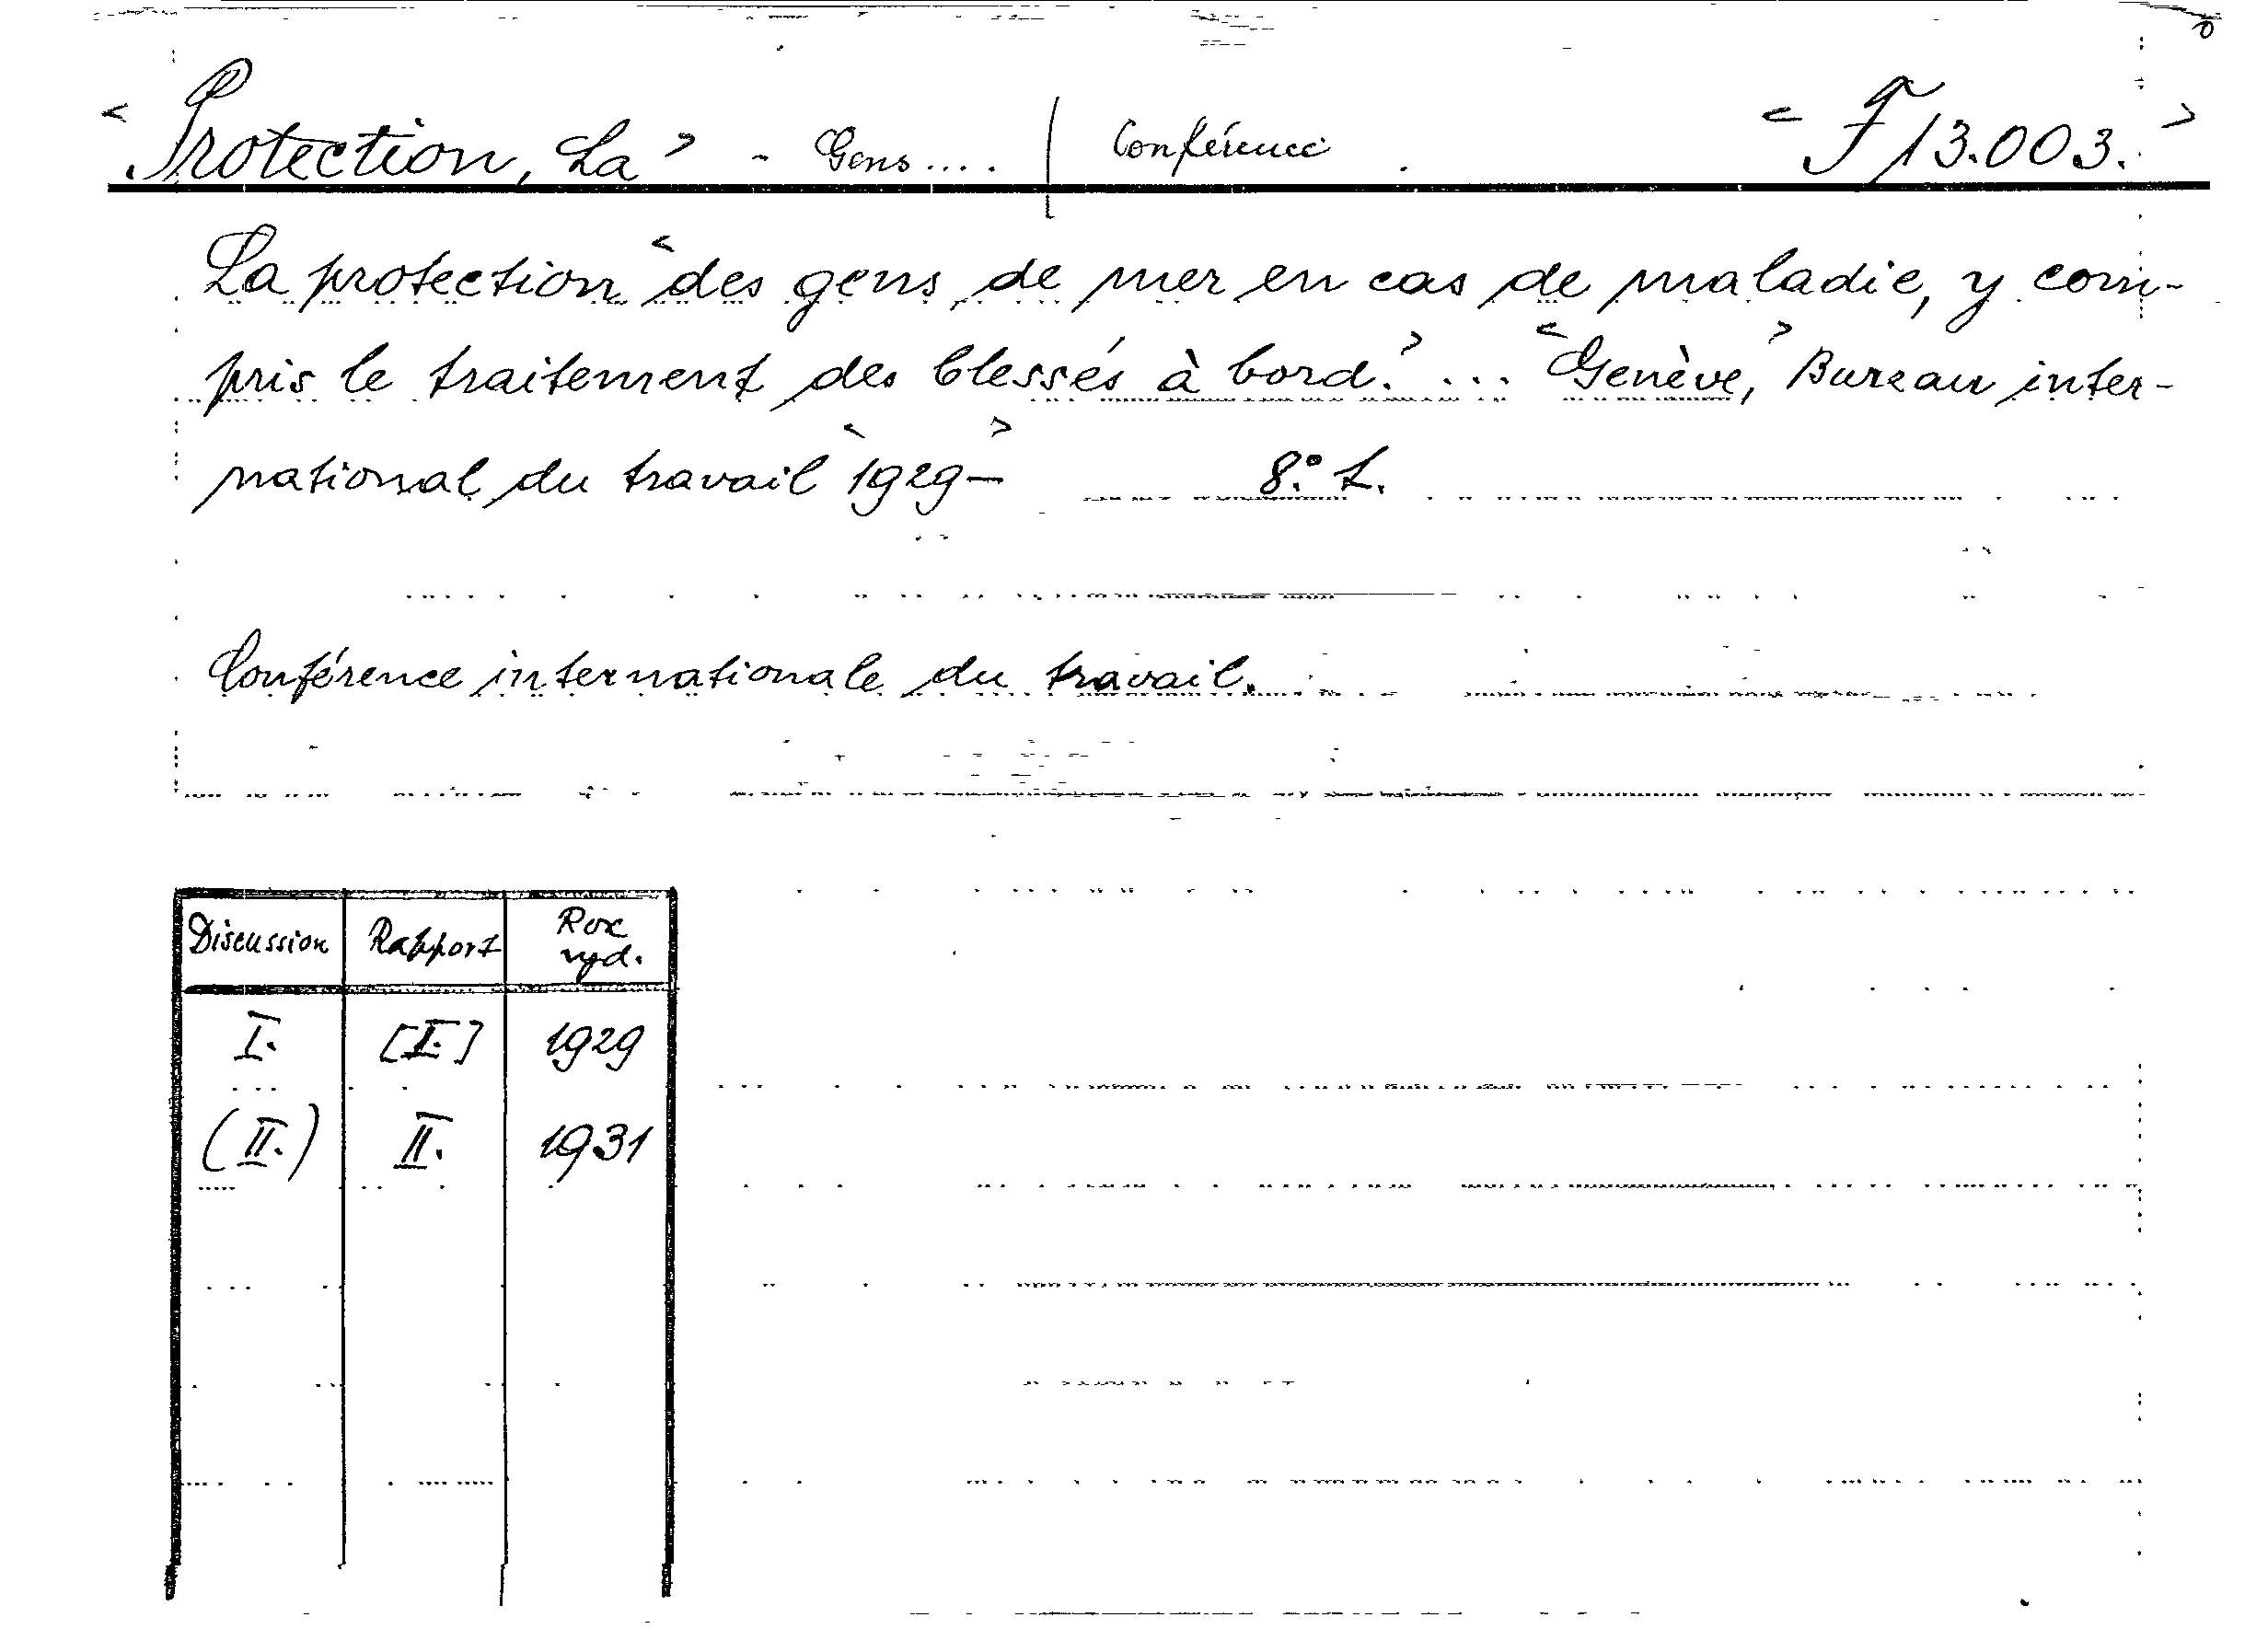 < Protection, La > - Gens.... | Conférence. < F 13.003. >
La protection < des gens de mer en cas de maladie, y com-
pris le traitement des blessés à bord. > ... < Genève, > Bureau inter-
national du travail < 1929- > 8°.
Conférence internationale du travail.
Discussion Rapport Rok vyd.
I. [I.] 1929
(II.) II. 1931